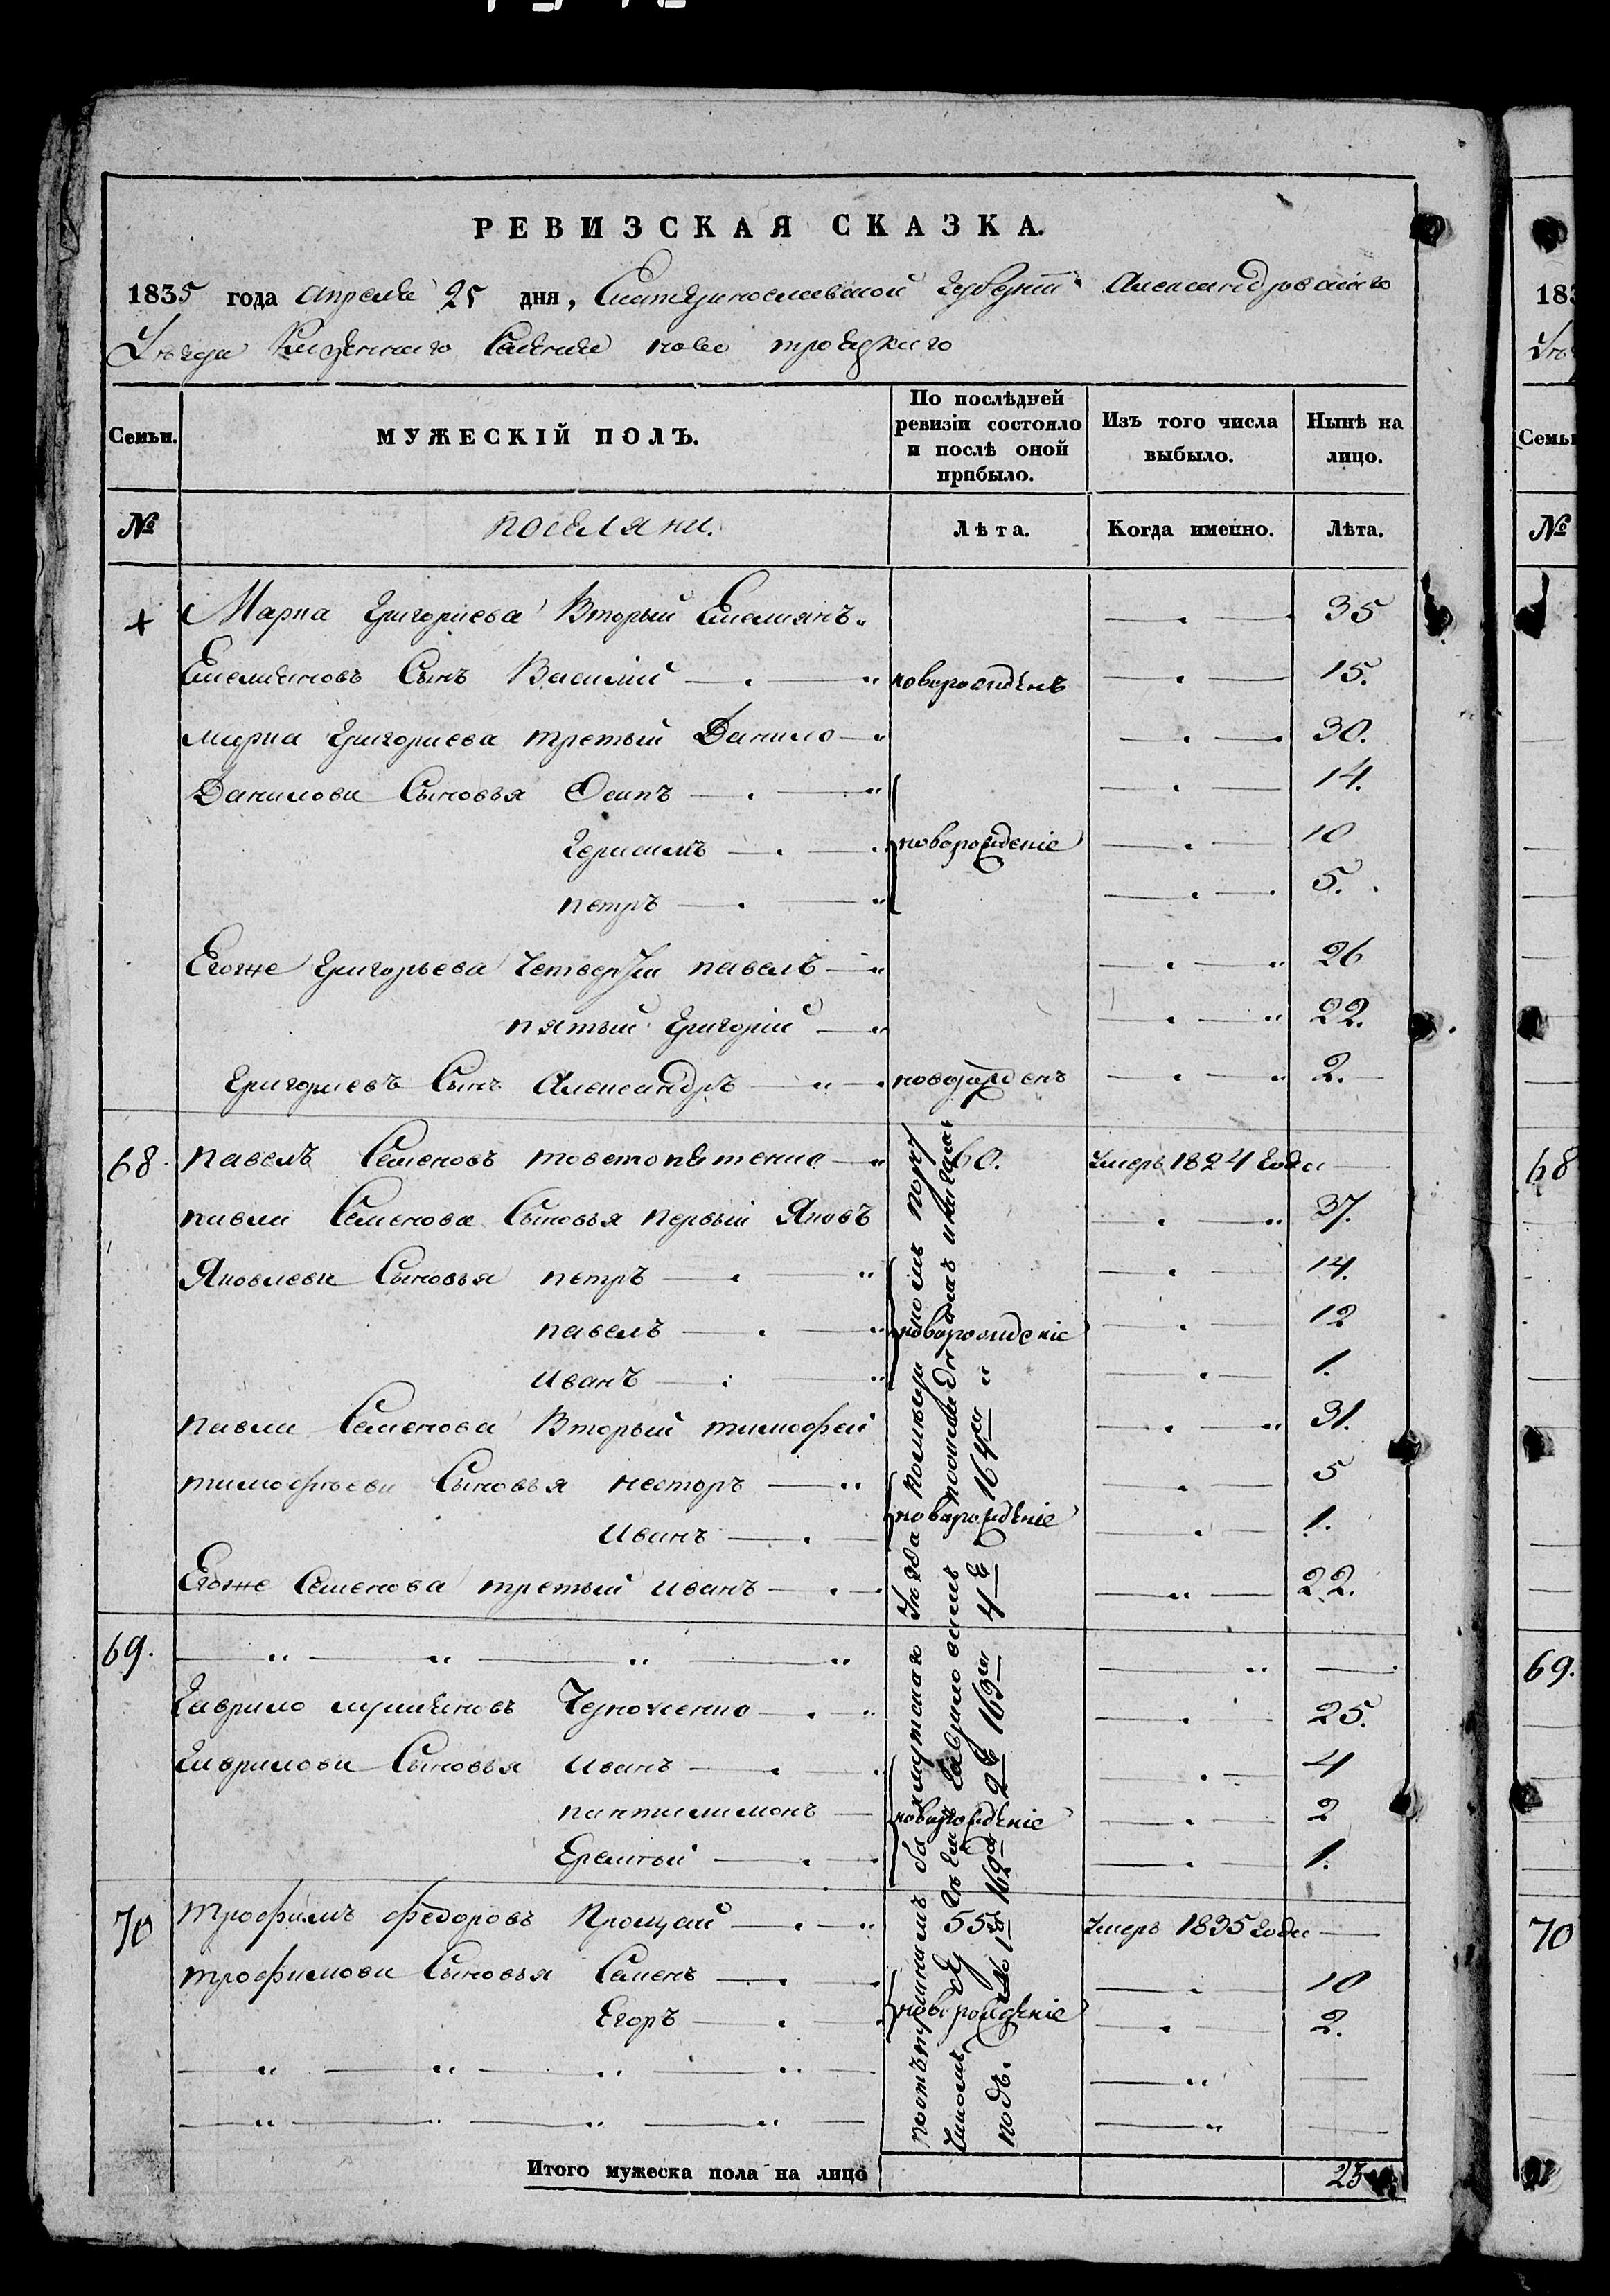 РЕВИЗСКАЯ СКАЗКА.
1835 года апреля 25 дня, Екатеринославской губерніи Александровскаго
Уезда Казеннаго Селения ново троицкаго
Семьи. МУЖЕСКІЙ ПОЛЪ. По послѣдней ревизіи состояло и послѣ оной прибыло. Изъ того числа выбыло. Нынѣ на лицо.
№ поселяни. Лѣта. Когда именно. Лѣта.
+ Марка Григориева Вторый Емелиянъ 35
Емелиановъ Сынъ Василій новорожденъ 15.
марка Григориева третый Данило 30.
Данилови Сыновья Осипъ 14.
Герисимъ новорожденіе 10
петръ 5.
Егоже Григорьева Четвертый павелъ 26
пятый Григорій 22.
Григориевъ Сынъ Александръ новорожденъ 2.
68. павелъ Семеновъ товстопятенко 60. Умеръ 1824 года
павла Семенова Сыновья первый Яковъ 37.
Яковлеви Сыновья петръ 14.
павелъ новорожденіе 12
иванъ 1.
павла Семенова Вторый тимофей 31.
тимофѣеви Сыновья несторъ 5
иванъ новорожденіе 1.
Егоже Семенова третый иванъ 22.
69.
Гаврило Черноженко 25.
Гаврилови Сыновья иванъ 4
пантилимонъ новорожденіе 2
Еремѣй 1.
70 трофимъ федоровъ Прощай 55 Умеръ 1835 года
трофимови Сыновья Семенъ 10
Егоръ новорожденіе 2.
Итого мужеска пола на лицо 23
183
Семьи
№
68
69.
70